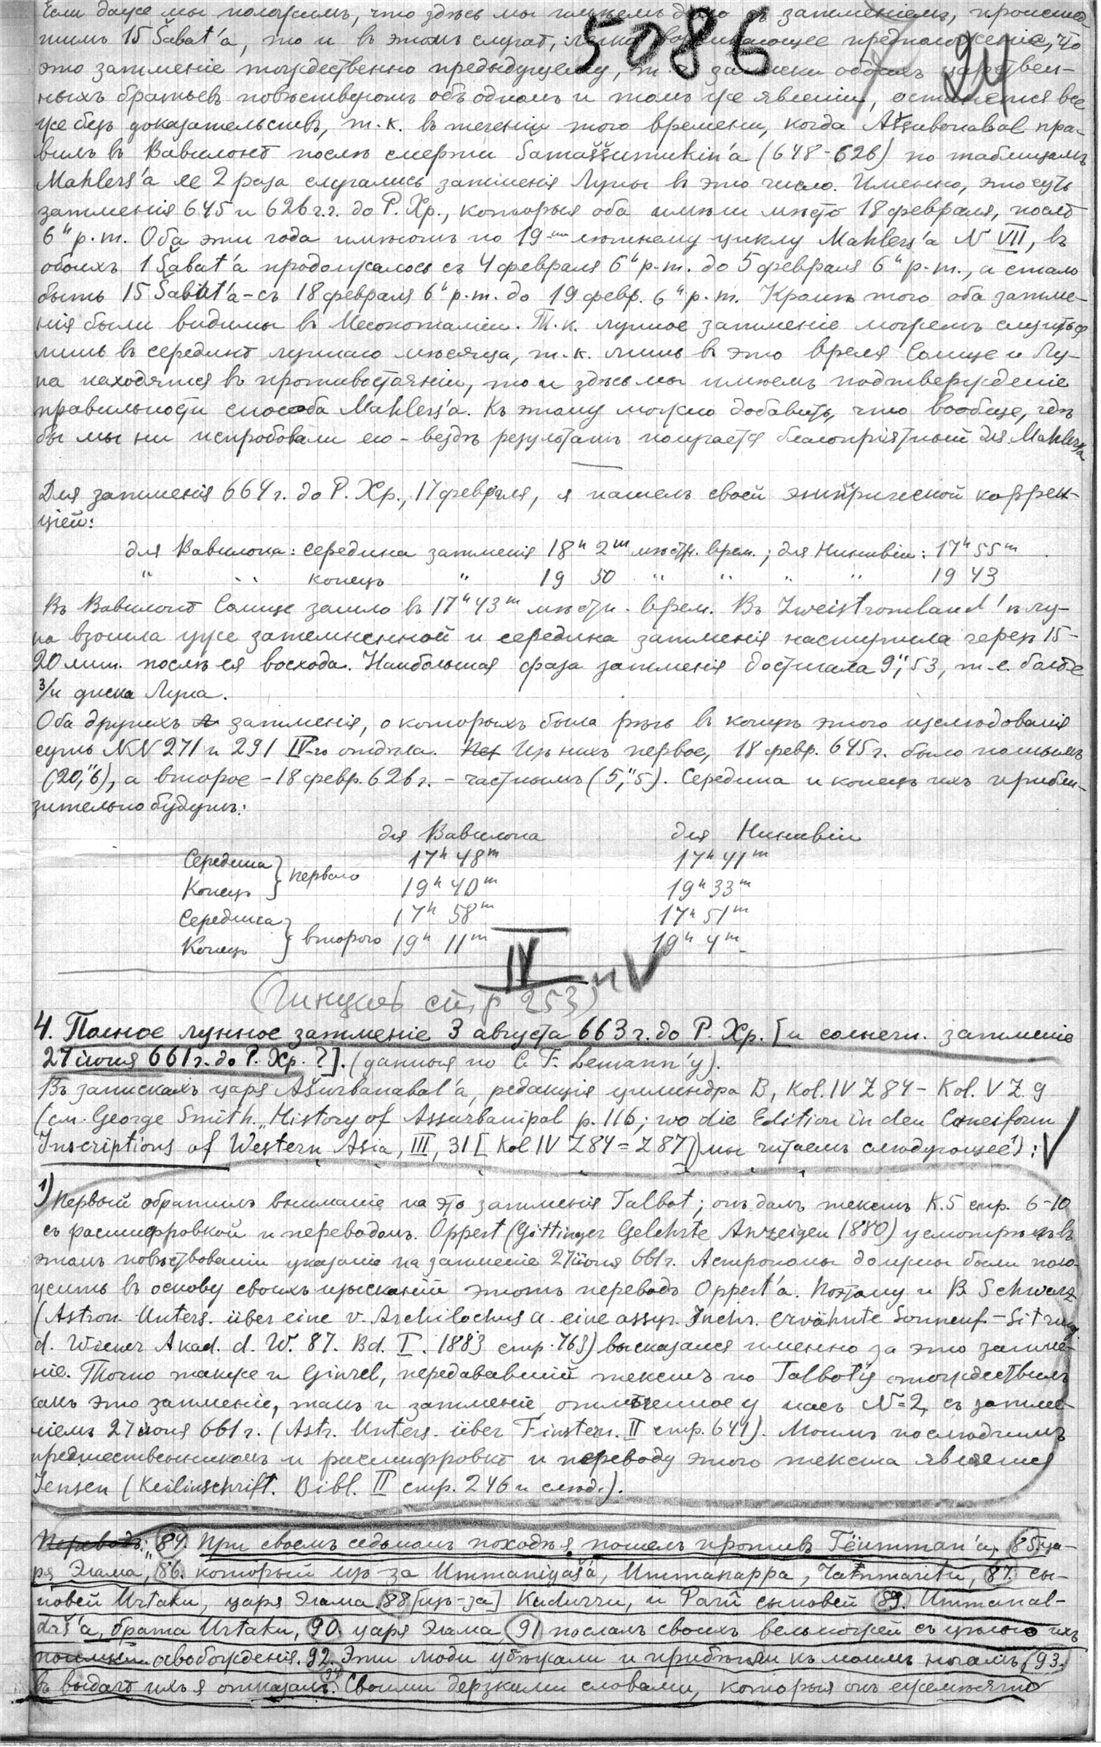 5086
если даже мы положимъ, что здѣсь мы имѣемъ дѣло съ затменіемъ, происшед-
шимъ 15 Šabat'а, то и въ этомъ случаѣ, предположеніе, что
это затменіе тождественно предыдущему, т.е. записки обоихъ царствен-
ныхъ братьевъ повѣствуютъ объ одномъ и томъ же явленіи, останется все
же безъ доказательствъ, т.к. въ теченіи того времени, когда Aššurbanabal пра-
вилъ въ Вавилонѣ послѣ смерти Šamaššumukin'а (648-626) по таблицамъ
Mahler'а 2 раза случались затменія Луны въ это число. Именно, это суть
затменія 645 и 626 г.г. до Р. Хр., которыя оба имѣли мѣсто 18 февраля, послѣ
6ʰ p.m. Оба эти года имѣютъ по 19-ти лѣтнему циклу Mahler'а N VII, въ
обоихъ 1 Šabat'а продолжалось съ 4 февраля 6ʰ p.m. до 5 февраля 6ʰ p.m., а стало
быть 15 Šabat'а - съ 18 февраля 6ʰ p.m. до 19 февр. 6ʰ p.m. Кромѣ того оба затме-
нія были видимы въ Месопотаміи. Т.к. лунное затменіе можетъ случиться
лишь въ серединѣ луннаго мѣсяца, т.к. лишь въ это время Солнце и Лу-
на находятся въ противостояніи, то и здѣсь мы имѣемъ подтвержденіе
правильности способа Mahler'а. Къ этому можно добавить, что вообще, гдѣ
бы мы ни испробовали его - вездѣ результатъ получается благопріятный для Mahler'а
Для затменія 664 г. до Р. Хр., 17 февраля, я нашелъ своей эмпирической коррек-
ціей:
для Вавилона: середина затменія 18ʰ 2ᵐ мѣстн. врем.; для Ниневіи: 17ʰ 55ᵐ
" " конецъ " 19 50 " " " " 19 43
Въ Вавилонѣ Солнце зашло въ 17ʰ 43ᵐ мѣстн. врем. Въ Zweistromland'ѣ лу-
на взошла уже затемненной и середина затменія наступила черезъ 15-
20 мин. послѣ ея восхода. Наибольшая фаза затменія достигала 9",53, т.е. болѣе
3/4 диска Луны.
Оба другихъ затменія, о которыхъ была рѣчь въ концѣ этого изслѣдованія
суть NN 271 и 291 IV-го отдѣла. Изъ нихъ первое, 18 февр. 645 г. было полнымъ
(20,"6), а второе - 18 февр. 626 г. - частнымъ (5,"5). Середина и конецъ ихъ прибли-
зительно будутъ:
для Вавилона для Ниневіи
Середина } перваго 17ʰ 48ᵐ 17ʰ 41ᵐ
Конецъ 19ʰ 40ᵐ 19ʰ 33ᵐ
Середина } второго 17ʰ 58ᵐ 17ʰ 51ᵐ
Конецъ 19ʰ 11ᵐ 19ʰ 4ᵐ
IV и V
(Гинцель стр 253)
4. Полное лунное затменіе 3 августа 663 г. до Р. Хр. [и солнечн. затменіе
27 іюня 661 г. до Р. Хр. ?]. (данныя по C. F. Lemann'у).
Въ запискахъ царя Ašurbanabal'а, редакція цилиндра B, Kol. IV Z 84 - Kol. V Z 9
(см. George Smith „History of Assurbanipal p. 116; wo die Edition in den Cuneiform
Inscriptions of Western Asia, III, 31 [Kol IV Z 84 = Z 87]) мы читаемъ слѣдующее¹⁾: V
1) Первый обратилъ вниманіе на это затменія Talbot; онъ далъ текстъ K. 5 стр. 6-10
съ расшифровкой и переводомъ. Oppert (Göttinger Gelehrte Anzeigen 1880) усмотрѣлъ въ
этомъ повѣствованіи указаніе на затменіе 27 іюня 661 г. Астрономы должны были поло-
жить въ основу своихъ изысканій этотъ переводъ Oppert'а. Поэтому и B Schwarz
(Astron. Unters. über eine v. Archilochus u. eine assyr. Inchr. erwähnte Sonnenf - Sitzung.
d. Wiener Akad. d. W. 87. Bd. I. 1883 стр. 763) высказался именно за это затме-
ніе. Точно также и Ginzel, передававшій текстъ по Talbot'у отождествилъ
какъ это затменіе, такъ и затменіе отмѣченное у насъ № 2, съ затме-
ніемъ 27 іюня 661 г. (Astr. Unters. über Finstern. II стр. 641). Моимъ послѣднимъ
предшественникомъ и расшифровкѣ и переводу этого текста является
Jensen (Keilinschrift. Bibl. II стр. 246 и слѣд.).
Переводъ: „84. При своемъ седьмомъ походѣ я пошелъ противъ Tëumman'а, 85. ца-
ря Элама, 86. который изъ за Ummanigaš'а, Ummanappa, Tammaritu, 87. сы-
новей Urtaku, царя Элама 88 [изъ-за] Kudurru, и Paru сыновей 89. Ummanal-
daš'а, брата Urtaku, 90. царя Элама, 91 послалъ своихъ вельможей съ цѣлью ихъ
освобожденія. 92. Эти люди убѣжали и прибѣгли къ моимъ ногамъ, 93.
въ выдачѣ ихъ я отказалъ. 94 Своими дерзкими словами, которыя онъ ежемѣсячно